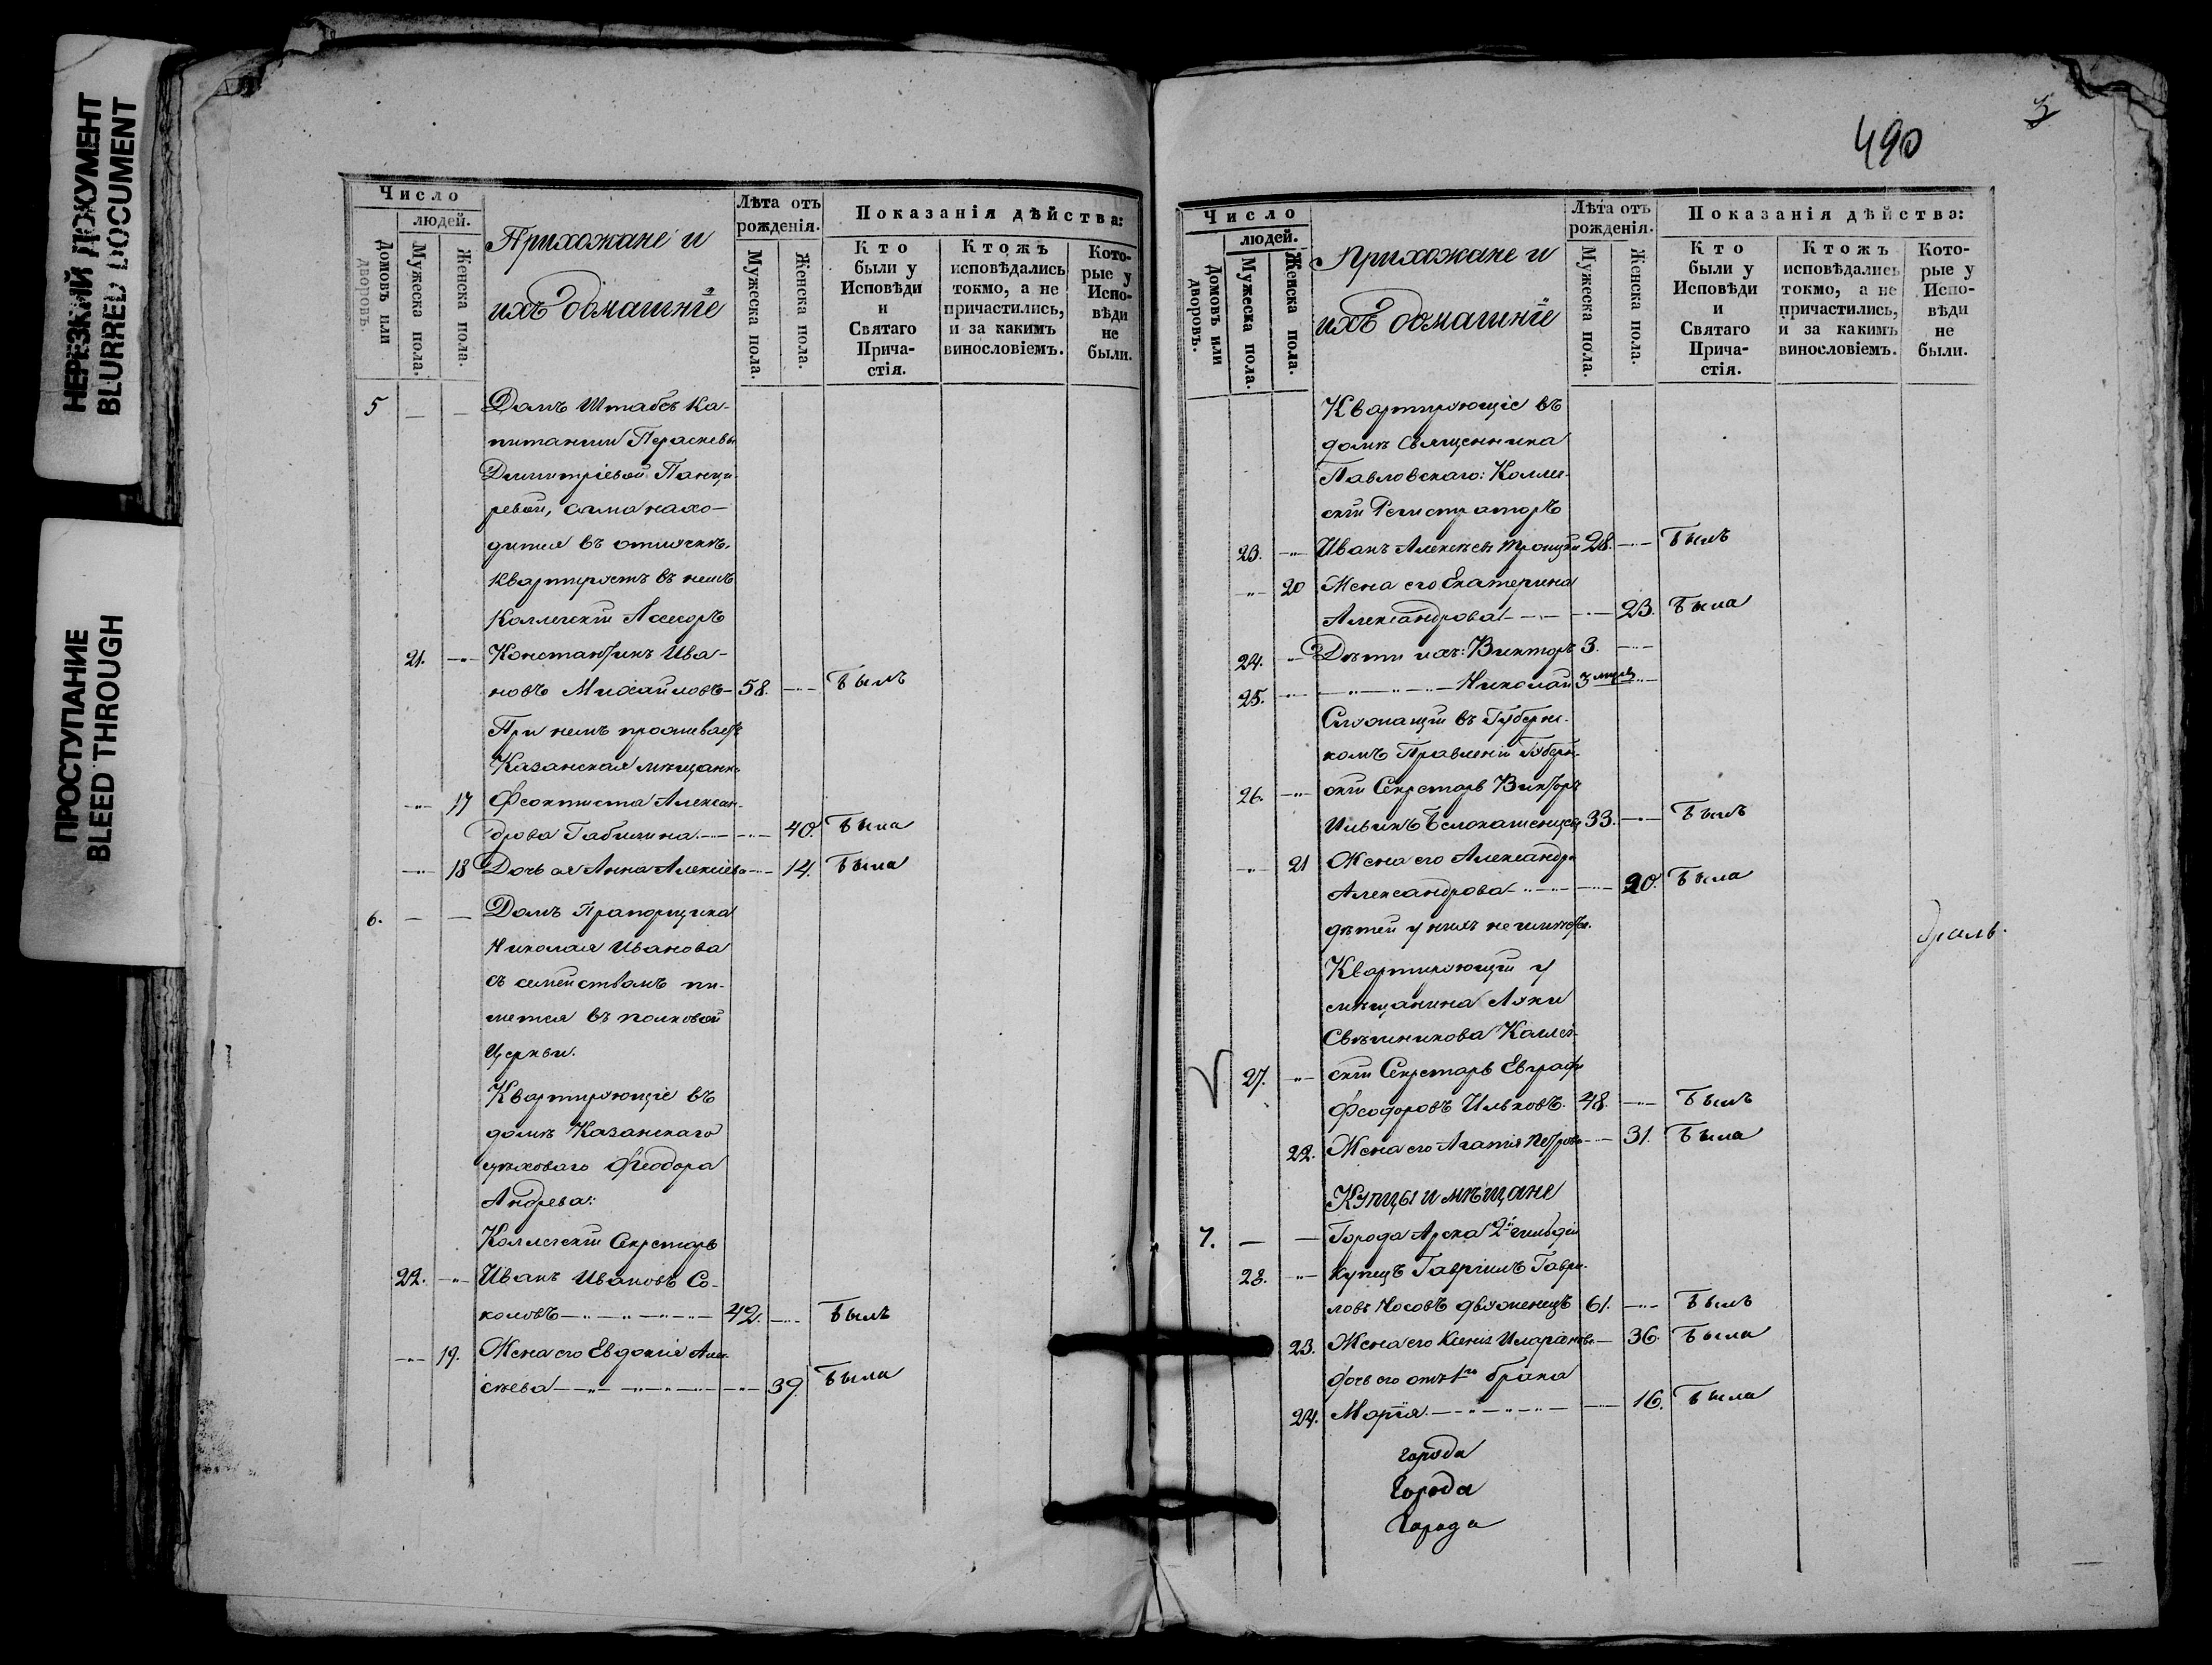 НЕРЕЗКИЙ ДОКУМЕНТ
BLURRED DOCUMENT
ПРОСТУПАНИЕ
BLEED THROUGH
Число
людей.
Домовъ или дворовъ.
Мужеска пола.
Женска пола.
Прихожане и
ихъ домашніе
Лѣта отъ рожденія.
Мужеска пола.
Женска пола.
Показанія дѣйства:
Кто были у Исповѣди и Святаго Прича-стія.
Ктожъ исповѣдались токмо, а не причастились, и за какимъ винословіемъ.
Кото-рые у Испо-вѣди не были.
5 — — Домъ Штабсъ Ка-
питанши Парасковьи
Димитріевой Панкра-
ревой, сама нахо-
дится въ отлучкѣ.
Квартируетъ въ немъ
Коллежскій Ассесоръ
21. —"— Константинъ Ива-
новъ Михайловъ — 58. —"— Былъ
При немъ проживаетъ
Казанская мѣщанка
—"— 17 Феоктиста Алексан-
дрова Габишина —"— 40. Была
—"— 18 Дочь ея Анна Алексіева —"— 14. Была
6. — — Домъ Прапорщика
Николая Иванова
съ семействомъ пи-
шется въ полковой
Церкви.
Квартирующіе въ
домѣ Казанскаго
цеховаго Феодора
Андрева:
Коллежскій Секретарь
22. —"— Иванъ Ивановъ Со-
коловъ —"—"—"— 42. —"— Былъ
—"— 19. Жена его Евдокія Алек-
сѣева —"—"—"— 39. Была
3
490
Число
людей.
Домовъ или дворовъ.
Мужеска пола.
Женска пола.
Прихожане и
ихъ домашніе
Лѣта отъ рожденія.
Мужеска пола.
Женска пола.
Показанія дѣйства:
Кто были у Исповѣди и Святаго Прича-стія.
Ктожъ исповѣдались токмо, а не причастились, и за какимъ винословіемъ.
Кото-рые у Испо-вѣди не были.
Квартирующіе въ
домѣ Священника
Павловскаго: Коллеж-
скій Регистраторъ
23. —"— Иванъ Алексѣевъ Троицкій 28. —"— Былъ
—"— 20 Жена его Екатерина
Александрова —"— —"— 23. Была
24. —"— Дѣти ихъ: Викторъ 3. —"—
25. —"— —"—"—"— Николай 3 мѣсяц. —"—
Служащій въ Губерн-
скомъ Правленіи Губерн-
26. —"— скій Секретарь Викторъ
Ильинъ Белокашенцевъ 33. —"— Былъ
—"— 21 Жена его Александра
Александрова —"—"— —"— 20. Была
дѣтей у нихъ не имѣется.
Квартирующій у
мѣщанина Луки
Свѣчникова Коллеж-
27. —"— скій Секретарь Евграфъ
Феодоровъ Ильковъ. 48. —"— Былъ
22. Жена его Агапія Петрова —"— 31. Была
Купцы и мѣщане
7. — — Города Арска 2й гильдіи
28. —"— купецъ Гавріилъ Гаври-
ловъ Носовъ двоженецъ 61. —"— Былъ
23. Жена его Ксенія Иларіонова — 36. Была
Дочь его отъ 1го брака
24. Марія. —"—"—"— —"— 16. Была
города
Города
Города